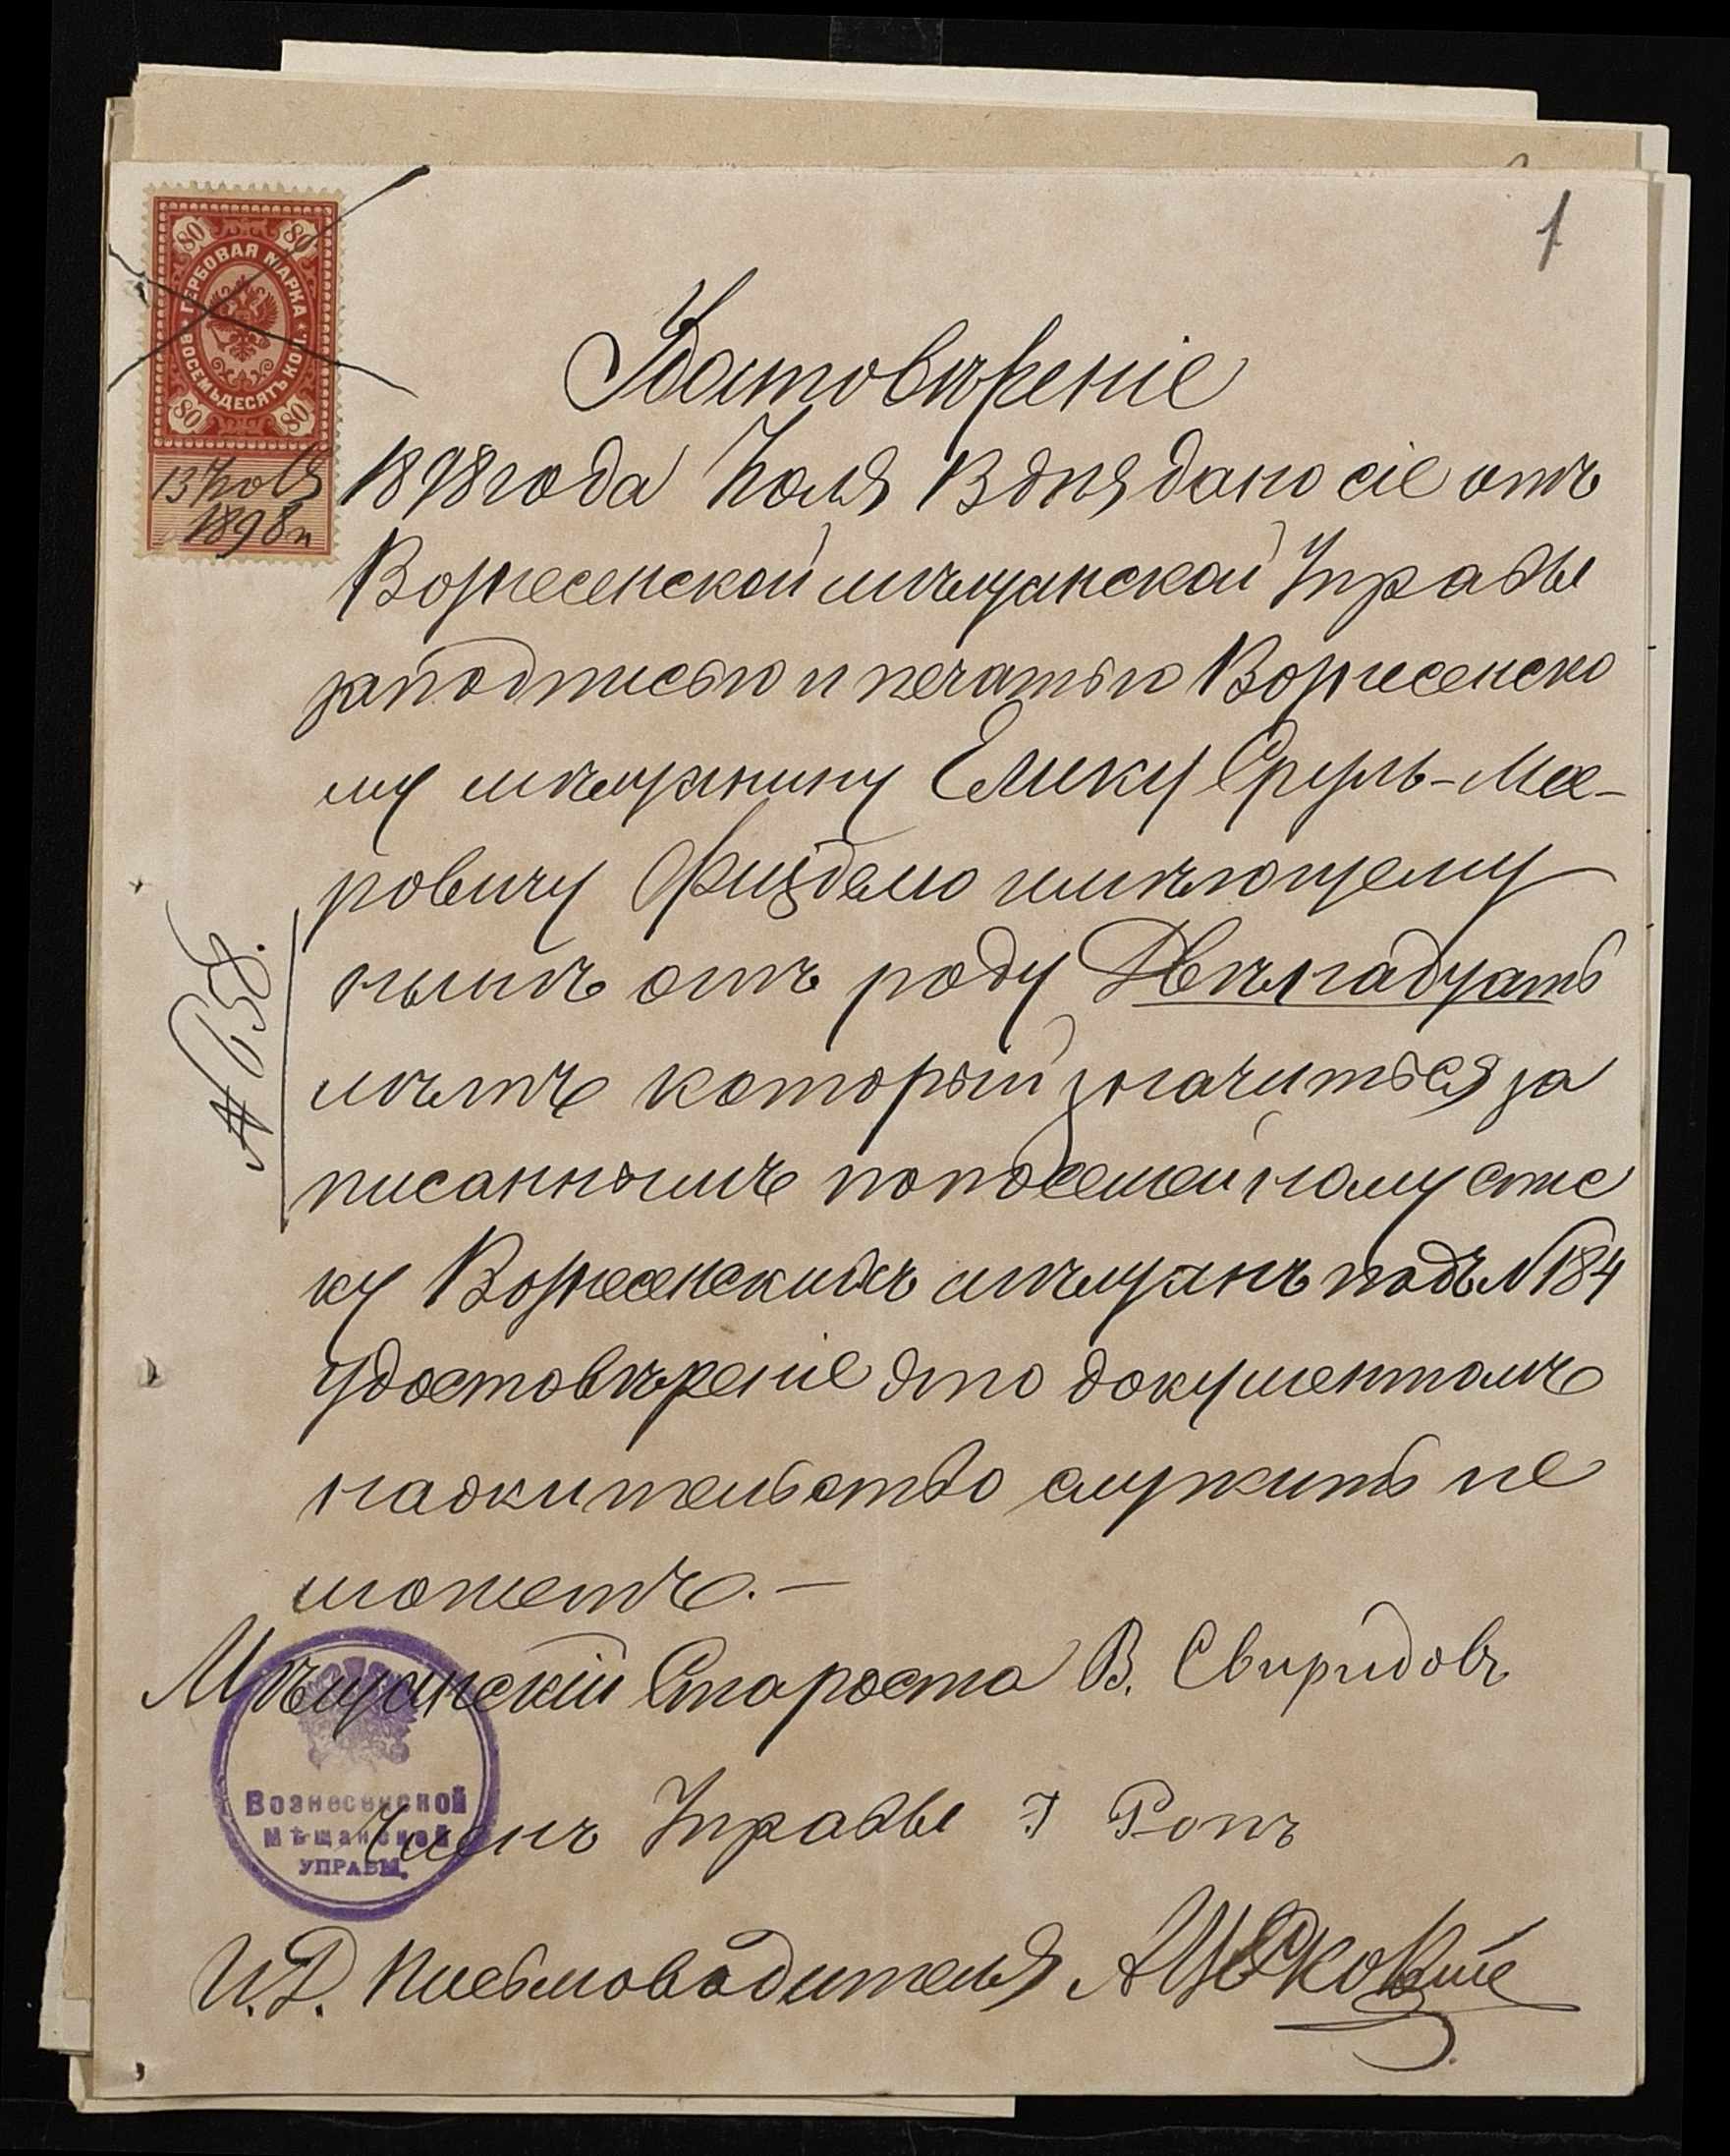 1
80 80
ГЕРБОВАЯ МАРКА
ВОСЕМЬДЕСЯТЪ КОП.
80 80
13 Іюля
1898 г
Удостовѣреніе
1898 года Іюля 13 дня дано сіе отъ
Вознесенской мѣщанской Управы
заподписью и печатью Вознесенско
му мѣщанину Елику Сруль-Мее-
ровичу имѣющему
нынѣ отъ роду Двѣнадцать
лѣтъ который значиться за
писаннымъ попосемейному спис
ку Вознесенскихъ мѣщанъ подъ №184
удостовѣреніе это документомъ
нажительство служить не
можетъ.—
№ 658.
Мѣщанскій Староста В. Свиридовъ
Членъ Управы
Вознесенской
Мѣщанской
УПРАВЫ.
И.Д. Письмоводителя